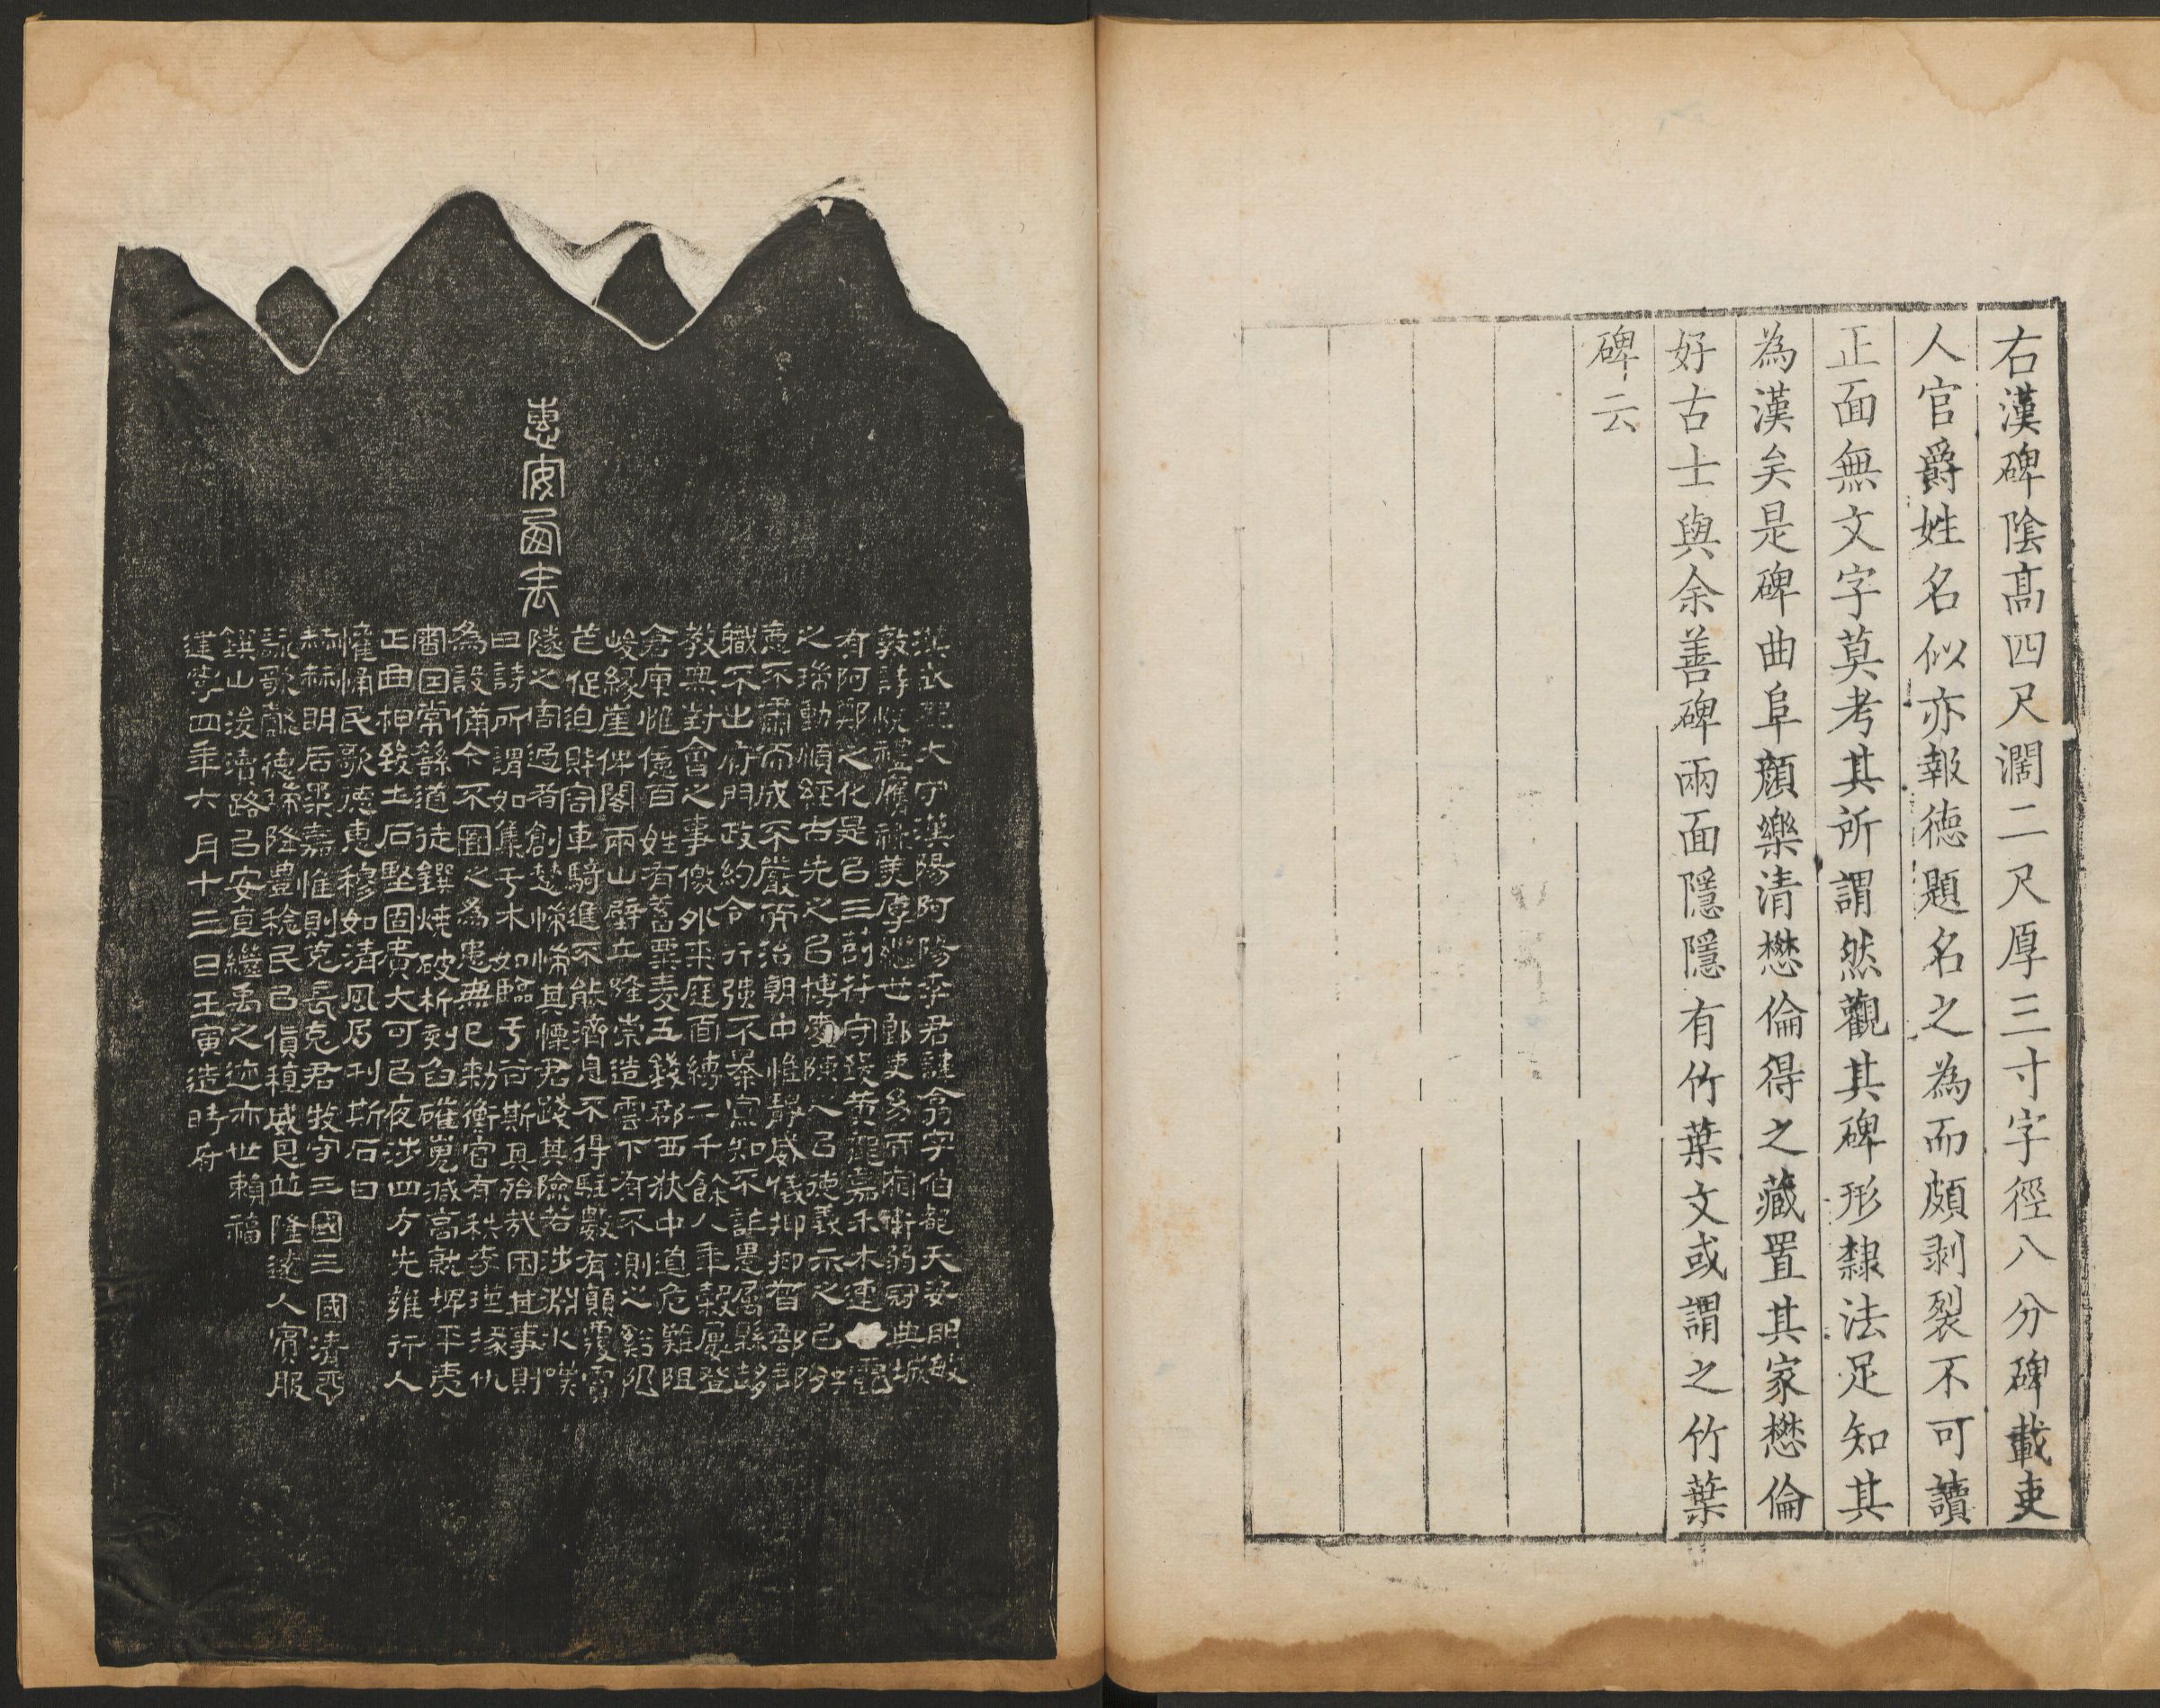 右漢碑陰高四尺濶二尺厚三寸字徑八分碑載吏
人官爵姓名似亦報德題名之為而頗剥裂不可讀
正面無文字莫考其所謂然觀其碑形隸法足知其
為漢矣是碑曲阜顏樂清懋倫得之藏置其家懋倫
好古士與余善碑兩面隱隱有竹葉文或謂之竹葉
碑云
惠安西表
漢武都大守漢陽阿陽李君諱翕字伯都天姿明敏
敦詩悅禮膺祿美厚繼世郎吏幼而宿衛弱冠典城
有阿鄭之化是以三剖苻守致黃龍嘉禾木連露
之瑞動順經古先之以博愛陳之以德義示之以好
惡不肅而成不嚴而治朝中惟靜威儀抑抑督郵部
職不出府門政約令行強不暴寡知不詐愚屬縣趍
教無對會之事儌外來庭面縛二千餘人年穀屢登
倉庾惟億百姓有蓄粟麥五錢郡西狹中道危難阻
峻緣崖俾閣兩山壁立隆崇造雲下有不測之谿阨
芒促迫財容車騎進不能濟息不得駐數有顛覆霣
隧之害過者創楚惴惴其慄君踐其險若涉淵冰嘆
曰詩所謂如集于木如臨于谷斯其殆哉困其事則
為設備今不圖之為患無已勑衡官有秩李瑾掾仇
審因常繇道徒鐉燒破析刻臽確嵬減高就埤平夷
正曲柙致土石堅固廣大可以夜涉四方无雍行人
懽悀民歌德惠穆如清風乃刊斯石曰
赫赫明后柔嘉惟則克長克君牧守三國三國清平
詠歌懿德瑞降豐稔民以貨稙威恩並隆遠人賓服
鐫山浚瀆路以安直繼禹之迹亦世賴福
建寧四年六月十三日壬寅造時府